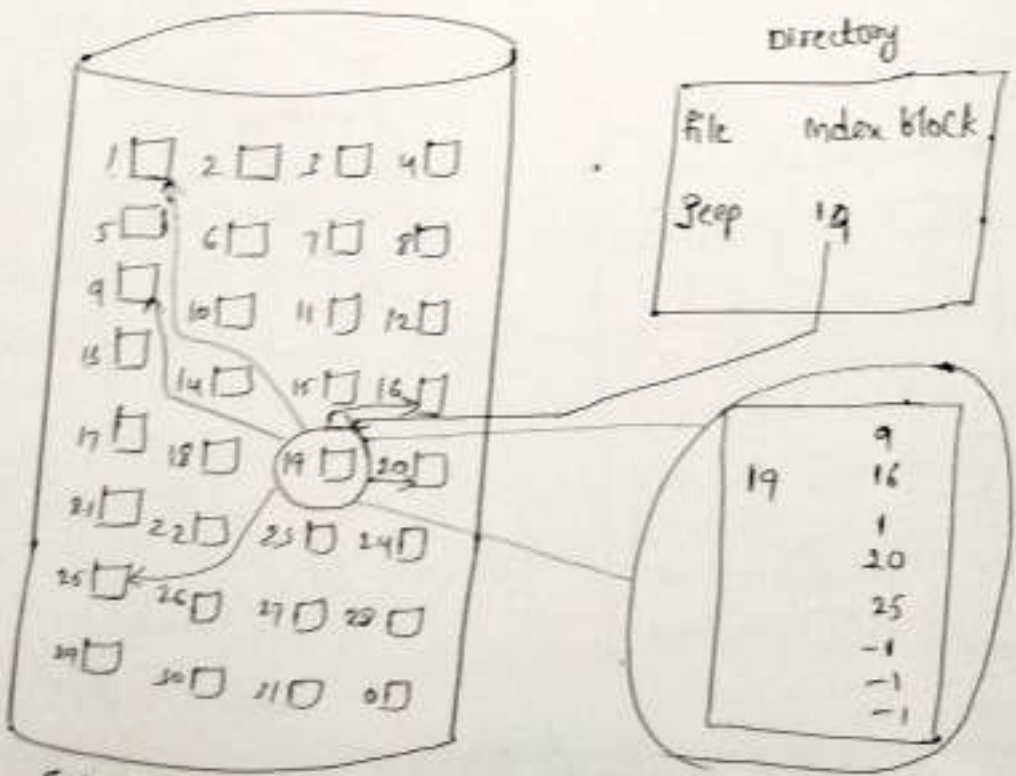 Directory
file index block
Jeep 19
1 2 3 4
5 6 7 8
9 10 11 12
13 14 15 16
17 18 19 20
21 22 23 24
25 26 27 28
29 30 31 0
9
19 16
1
20
25
-1
-1
-1